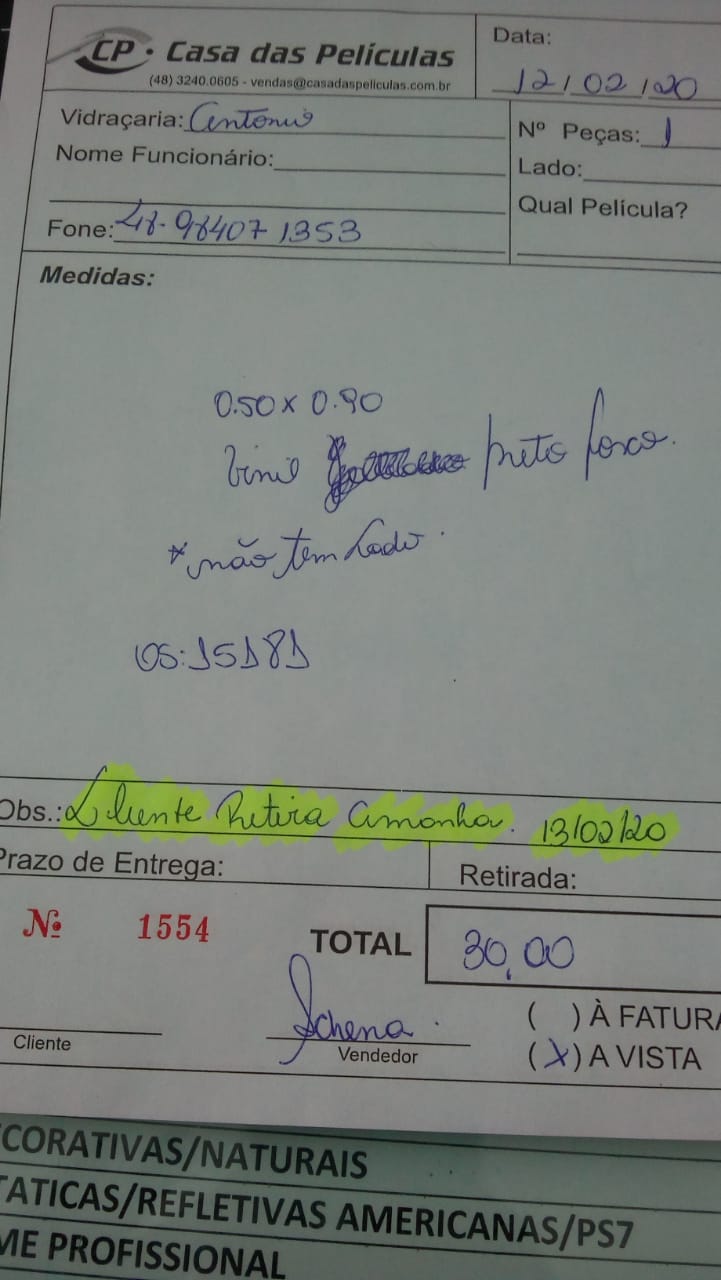 CP • Casa das Películas
(48) 3240.0605 - vendas@casadaspeliculas.com.br
Data:
12/02/20
Vidraçaria: Antonio
Nº Peças: 1
Nome Funcionário:
Lado:
Qual Película?
Fone: 48-98407 1353
Medidas:
0.50 x 0.90
Vinil preto fosco.
*não tem Lado.
OS: 15181
Obs.: Cliente Retira amanhã. 13/02/20
Prazo de Entrega:
Retirada:
Nº 1554
TOTAL 30,00
( ) À FATURA
(X) A VISTA
Cliente
Vendedor
CORATIVAS/NATURAIS
TATICAS/REFLETIVAS AMERICANAS/PS7
ME PROFISSIONAL